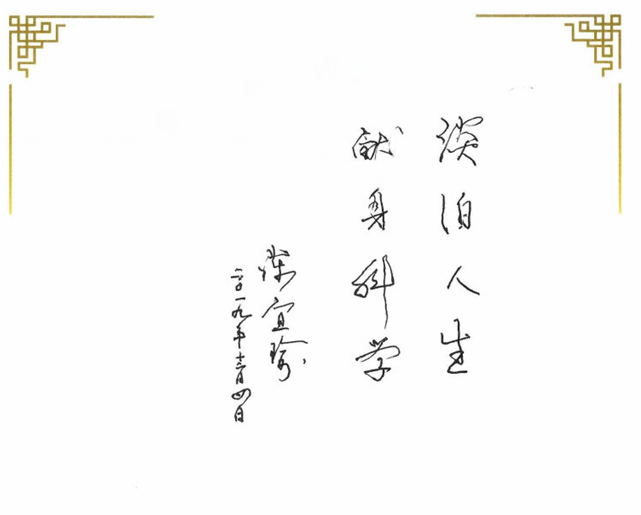 淡泊人生
献身科学
陈宜瑜
二〇一九年十二月四日